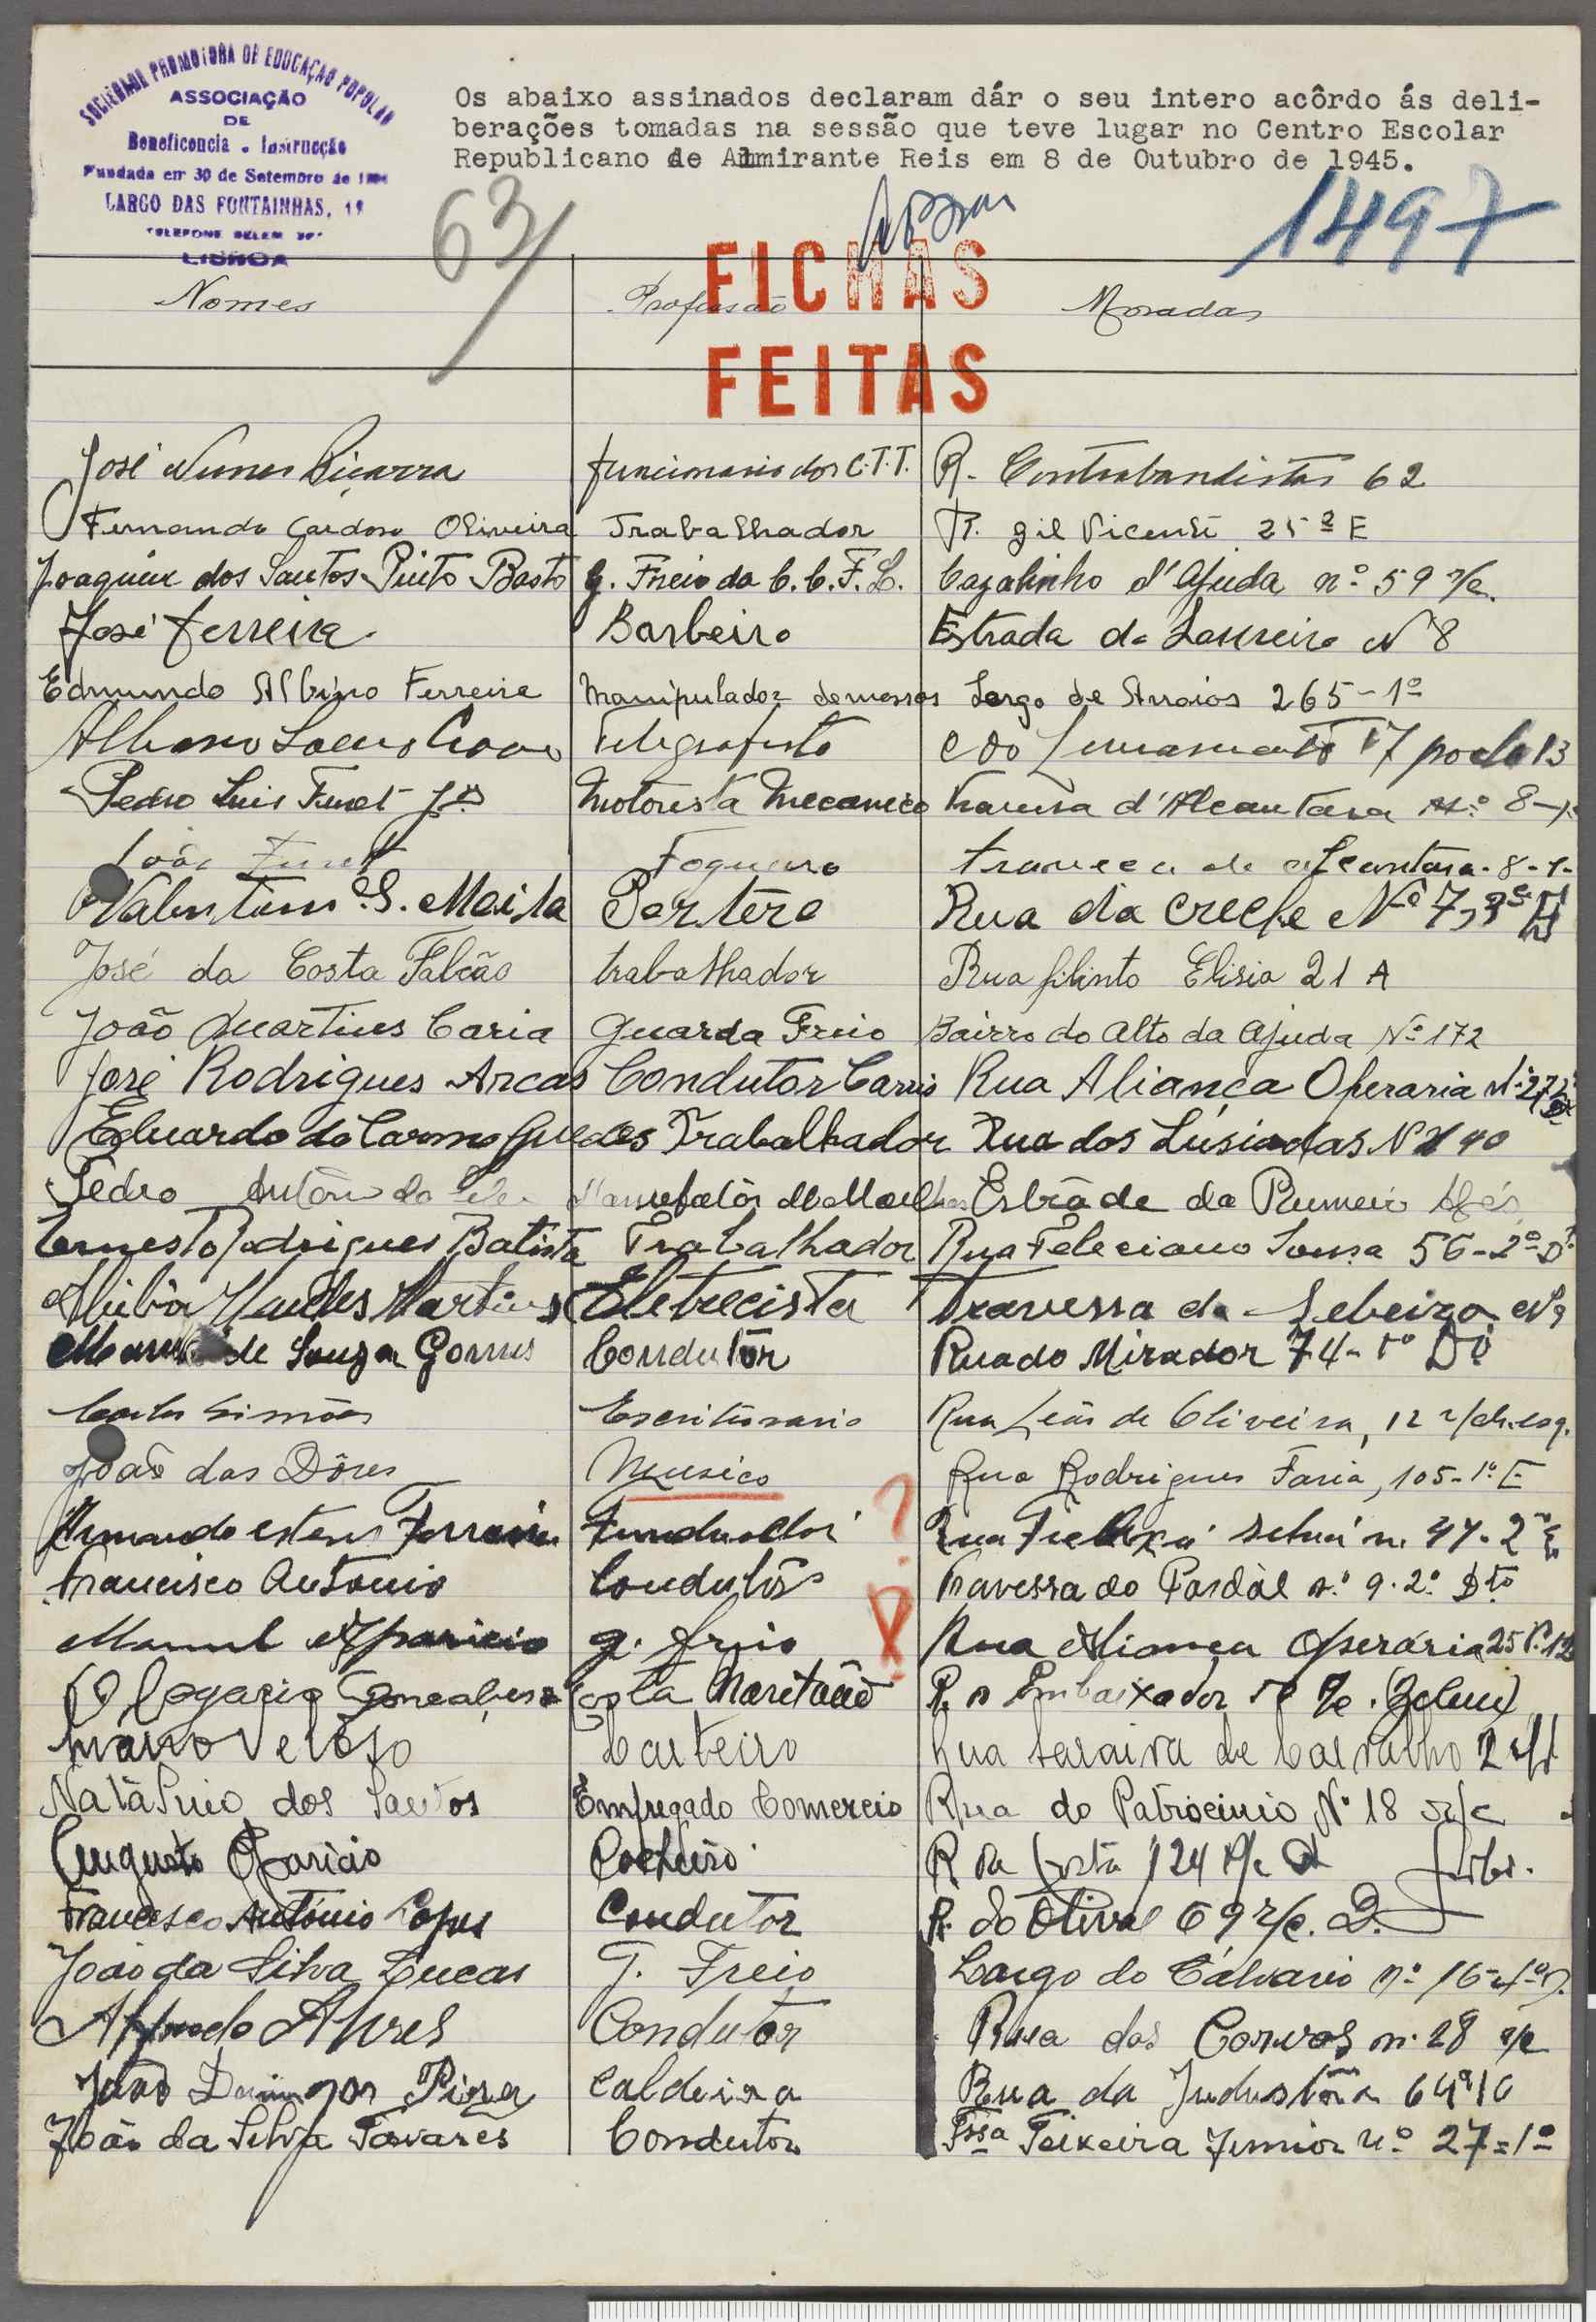 SOCIEDADE PROMOTORA DE EDUCAÇÃO POPULAR
ASSOCIAÇÃO
DE
Beneficencia e Instrucção
Fundada em 30 de Setembro de
LARGO DAS FONTAINHAS, 19
TELEFONE BELEM
LISBOA
Os abaixo assinados declaram dár o seu intero acôrdo ás deli-
berações tomadas na sessão que teve lugar no Centro Escolar
Republicano de Almirante Reis em 8 de Outubro de 1945.
63
1497
FICHAS
FEITAS
Nomes Profissão Moradas
José Nunes Biçarra funcionario dos C.T.T. R. Contrabandistas 62
Fernando Cardoso Oliveira Trabalhador R. Gil Vicente 25 2º E
Joaquim dos Santos Pinto Basto G. Freio da C.C.F.L. Cazalinho d'Ajuda nº 59 r/c.
José Ferreira Barbeiro Estrada do Loureiro Nº 8
Edmundo Albino Ferreira Manipulador de massas Largo de Arroios 265-1º
Telegrafista
Pedro Luis Funet Jor Motorista Mecanico Travessa d'Alcantara Nº 8-
João Funet Fogueiro travessa de Alcantara-8-1-
Valentim S. Maila Porteiro Rua da Creche Nº 7, 3º
José da Costa Falcão trabalhador Rua filinto Elisio 21 A
João Martins Caria Guarda Freio Bairro do Alto da Ajuda Nº 172
José Rodrigues Arcas Condutor Carris Rua Aliança Operaria
Eduardo do Carmo Guedes Trabalhador Rua dos Lusiadas Nº 40
Pedro António da Estrada de
Ernesto Rodrigues Batista Trabalhador Rua Feleciano Sousa 56-2º Dº
Mendes Martins Eletrecista Travessa da
de Souza Gomes Condutôr Rua do Mirador 74-1º Dº
Carlos Simões Escriturario Rua Leão de Oliveira, 12 r/ch. esq.
João das Dôres Musico Rua Rodrigues Faria, 105-1º E
Armando Esteves Ferreira ?
Francisco Antonio Condutôr Travessa do Pardàl nº 9-2º Dto
Manuel Aparicio g. freio Rua Aliança Operária 25
Olegario Gonçalves Costa R. do Embaixador
Mário Velôso Carteiro Rua Saraiva de Carvalho 2
Natálino dos Santos Empregado Comercio Rua do Patrocinio Nº 18 r/c
Augusto Aparicio Cocheiro R da 124 r/c
Francisco António Lopes Condutor R. do Olival 69 r/c. D.
João da Silva Lucas G. Freio Largo do Calvario nº 16-4º D.
Alfredo Alves Condutor Rua dos Corvos nº 28 r/c
João Domingos Caldeira Rua da Industria 64
João da Silva Tavares Condutor Tssa Teixeira Junior nº 27=1º